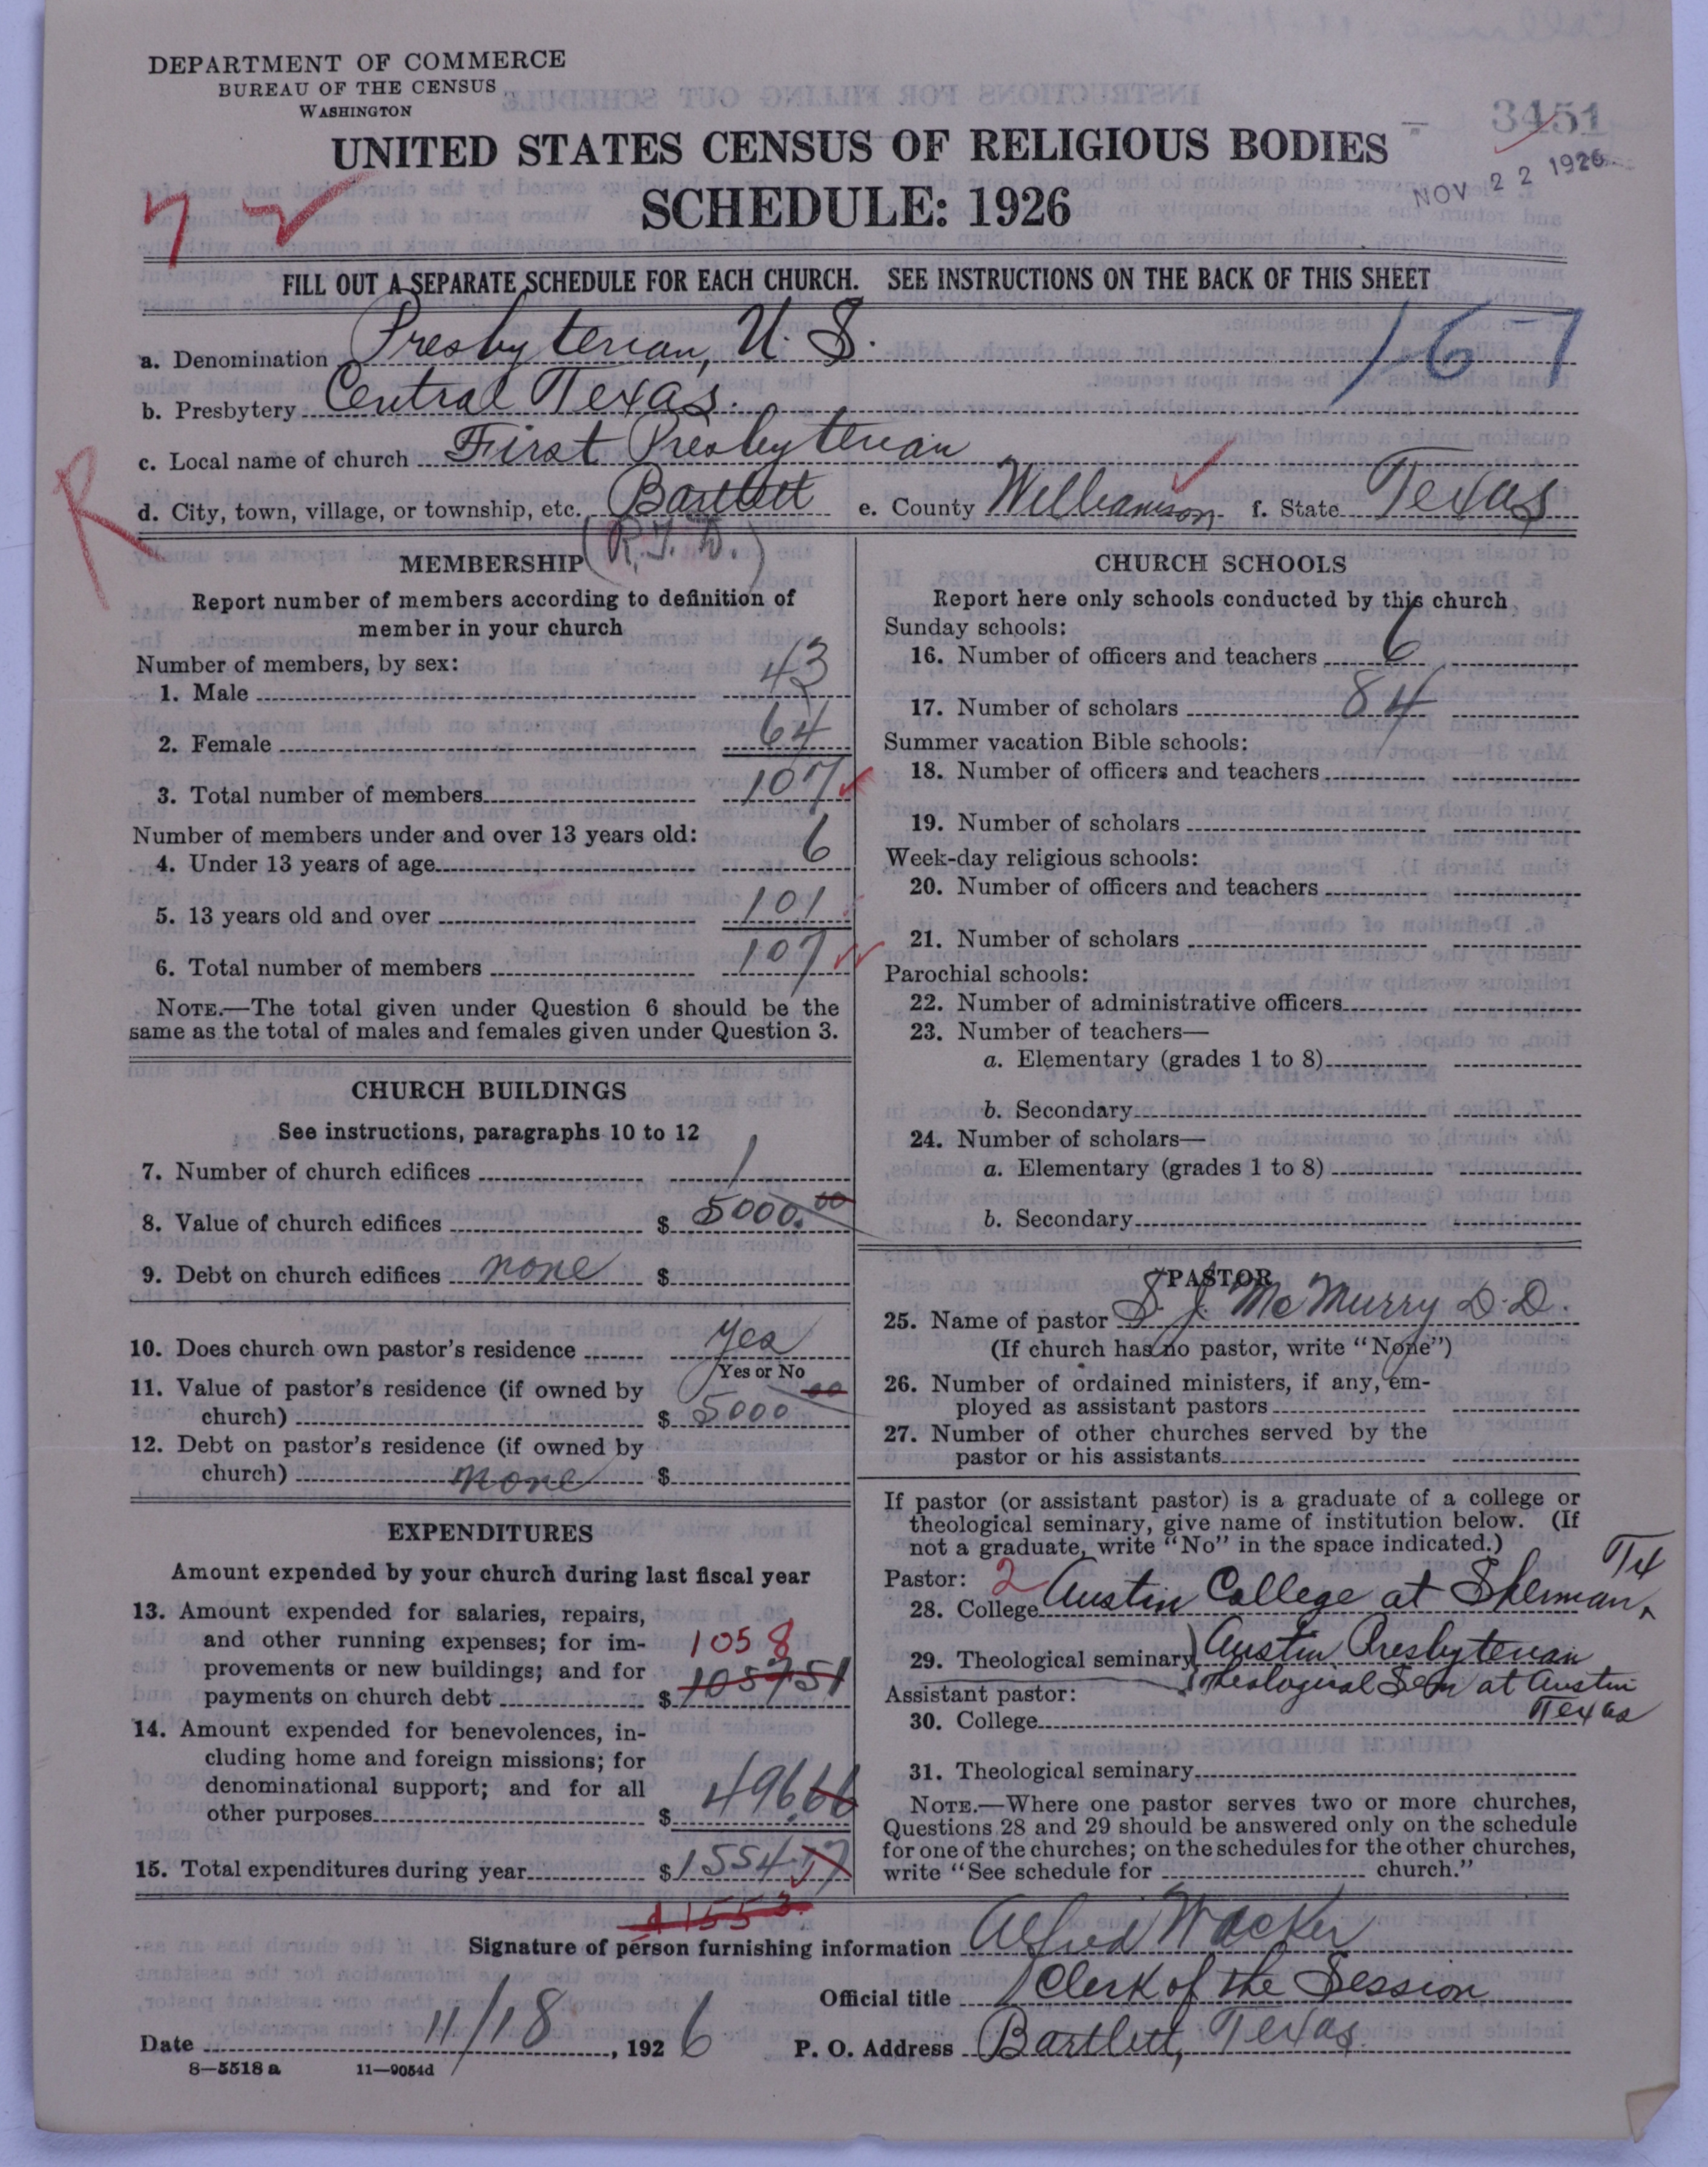 DEPARTMENT OF COMMERCE
BUREAU OF THE CENSUS
WASHINGTON
3451
NOV 22 1926
UNITED STATES CENSUS OF RELIGIOUS BODIES
SCHEDULE: 1926
FILL OUT A SEPARATE SCHEDULE FOR EACH CHURCH. SEE INSTRUCTIONS ON THE BACK OF THIS SHEET
a. Denomination Presbyterian, U. S. 167
b. Presbytery Central Texas.
c. Local name of church First Presbyterian
R
d. City, town, village, or township, etc. Bartlett e. County Williamson f. State Texas
(R.F.D.)
MEMBERSHIP
Report number of members according to definition of
member in your church
Number of members, by sex:
1. Male 43
2. Female 64
3. Total number of members 107
Number of members under and over 13 years old:
4. Under 13 years of age 6
5. 13 years old and over 101
6. Total number of members 107
NOTE.—The total given under Question 6 should be the
same as the total of males and females given under Question 3.
CHURCH BUILDINGS
See instructions, paragraphs 10 to 12
7. Number of church edifices 1
8. Value of church edifices $ 5000.00
9. Debt on church edifices none $
10. Does church own pastor's residence yes
Yes or No
11. Value of pastor's residence (if owned by
church) $ 5000 00
12. Debt on pastor's residence (if owned by
church) none $
EXPENDITURES
Amount expended by your church during last fiscal year
13. Amount expended for salaries, repairs,
and other running expenses; for im-
1058
provements or new buildings; and for
payments on church debt $ 105751
14. Amount expended for benevolences, in-
cluding home and foreign missions; for
denominational support; and for all
other purposes $ 496.66
15. Total expenditures during year $ 1554.17
1553
CHURCH SCHOOLS
Report here only schools conducted by this church
Sunday schools:
16. Number of officers and teachers 6
17. Number of scholars 84
Summer vacation Bible schools:
18. Number of officers and teachers
19. Number of scholars
Week-day religious schools:
20. Number of officers and teachers
21. Number of scholars
Parochial schools:
22. Number of administrative officers
23. Number of teachers—
a. Elementary (grades 1 to 8)
b. Secondary
24. Number of scholars—
a. Elementary (grades 1 to 8)
b. Secondary
PASTOR
25. Name of pastor S. J. McMurry D.D.
(If church has no pastor, write "None")
26. Number of ordained ministers, if any, em-
ployed as assistant pastors
27. Number of other churches served by the
pastor or his assistants
If pastor (or assistant pastor) is a graduate of a college or
theological seminary, give name of institution below. (If
not a graduate, write "No" in the space indicated.)
Pastor: 2
28. College Austin College at Sherman, Tex
29. Theological seminary Austin Presbyterian
Theological Sem at Austin
Texas
Assistant pastor:
30. College
31. Theological seminary
NOTE.—Where one pastor serves two or more churches,
Questions 28 and 29 should be answered only on the schedule
for one of the churches; on the schedules for the other churches,
write "See schedule for church."
Signature of person furnishing information Alfred Wacker
Official title Clerk of the Session
Date 11/18, 1926 P. O. Address Bartlett, Texas.
8—5518 a 11—9054d